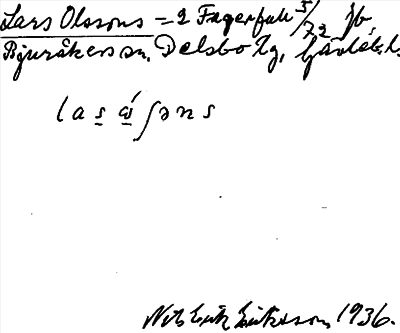 Lars Olssons = 2 Fagerfall 5/72 Jb
Bjuråkers sn, Delsbo tg, Gävleb. l.
l a s ώ ʃ ə n s
Nils Erik Eriksson, 1936.